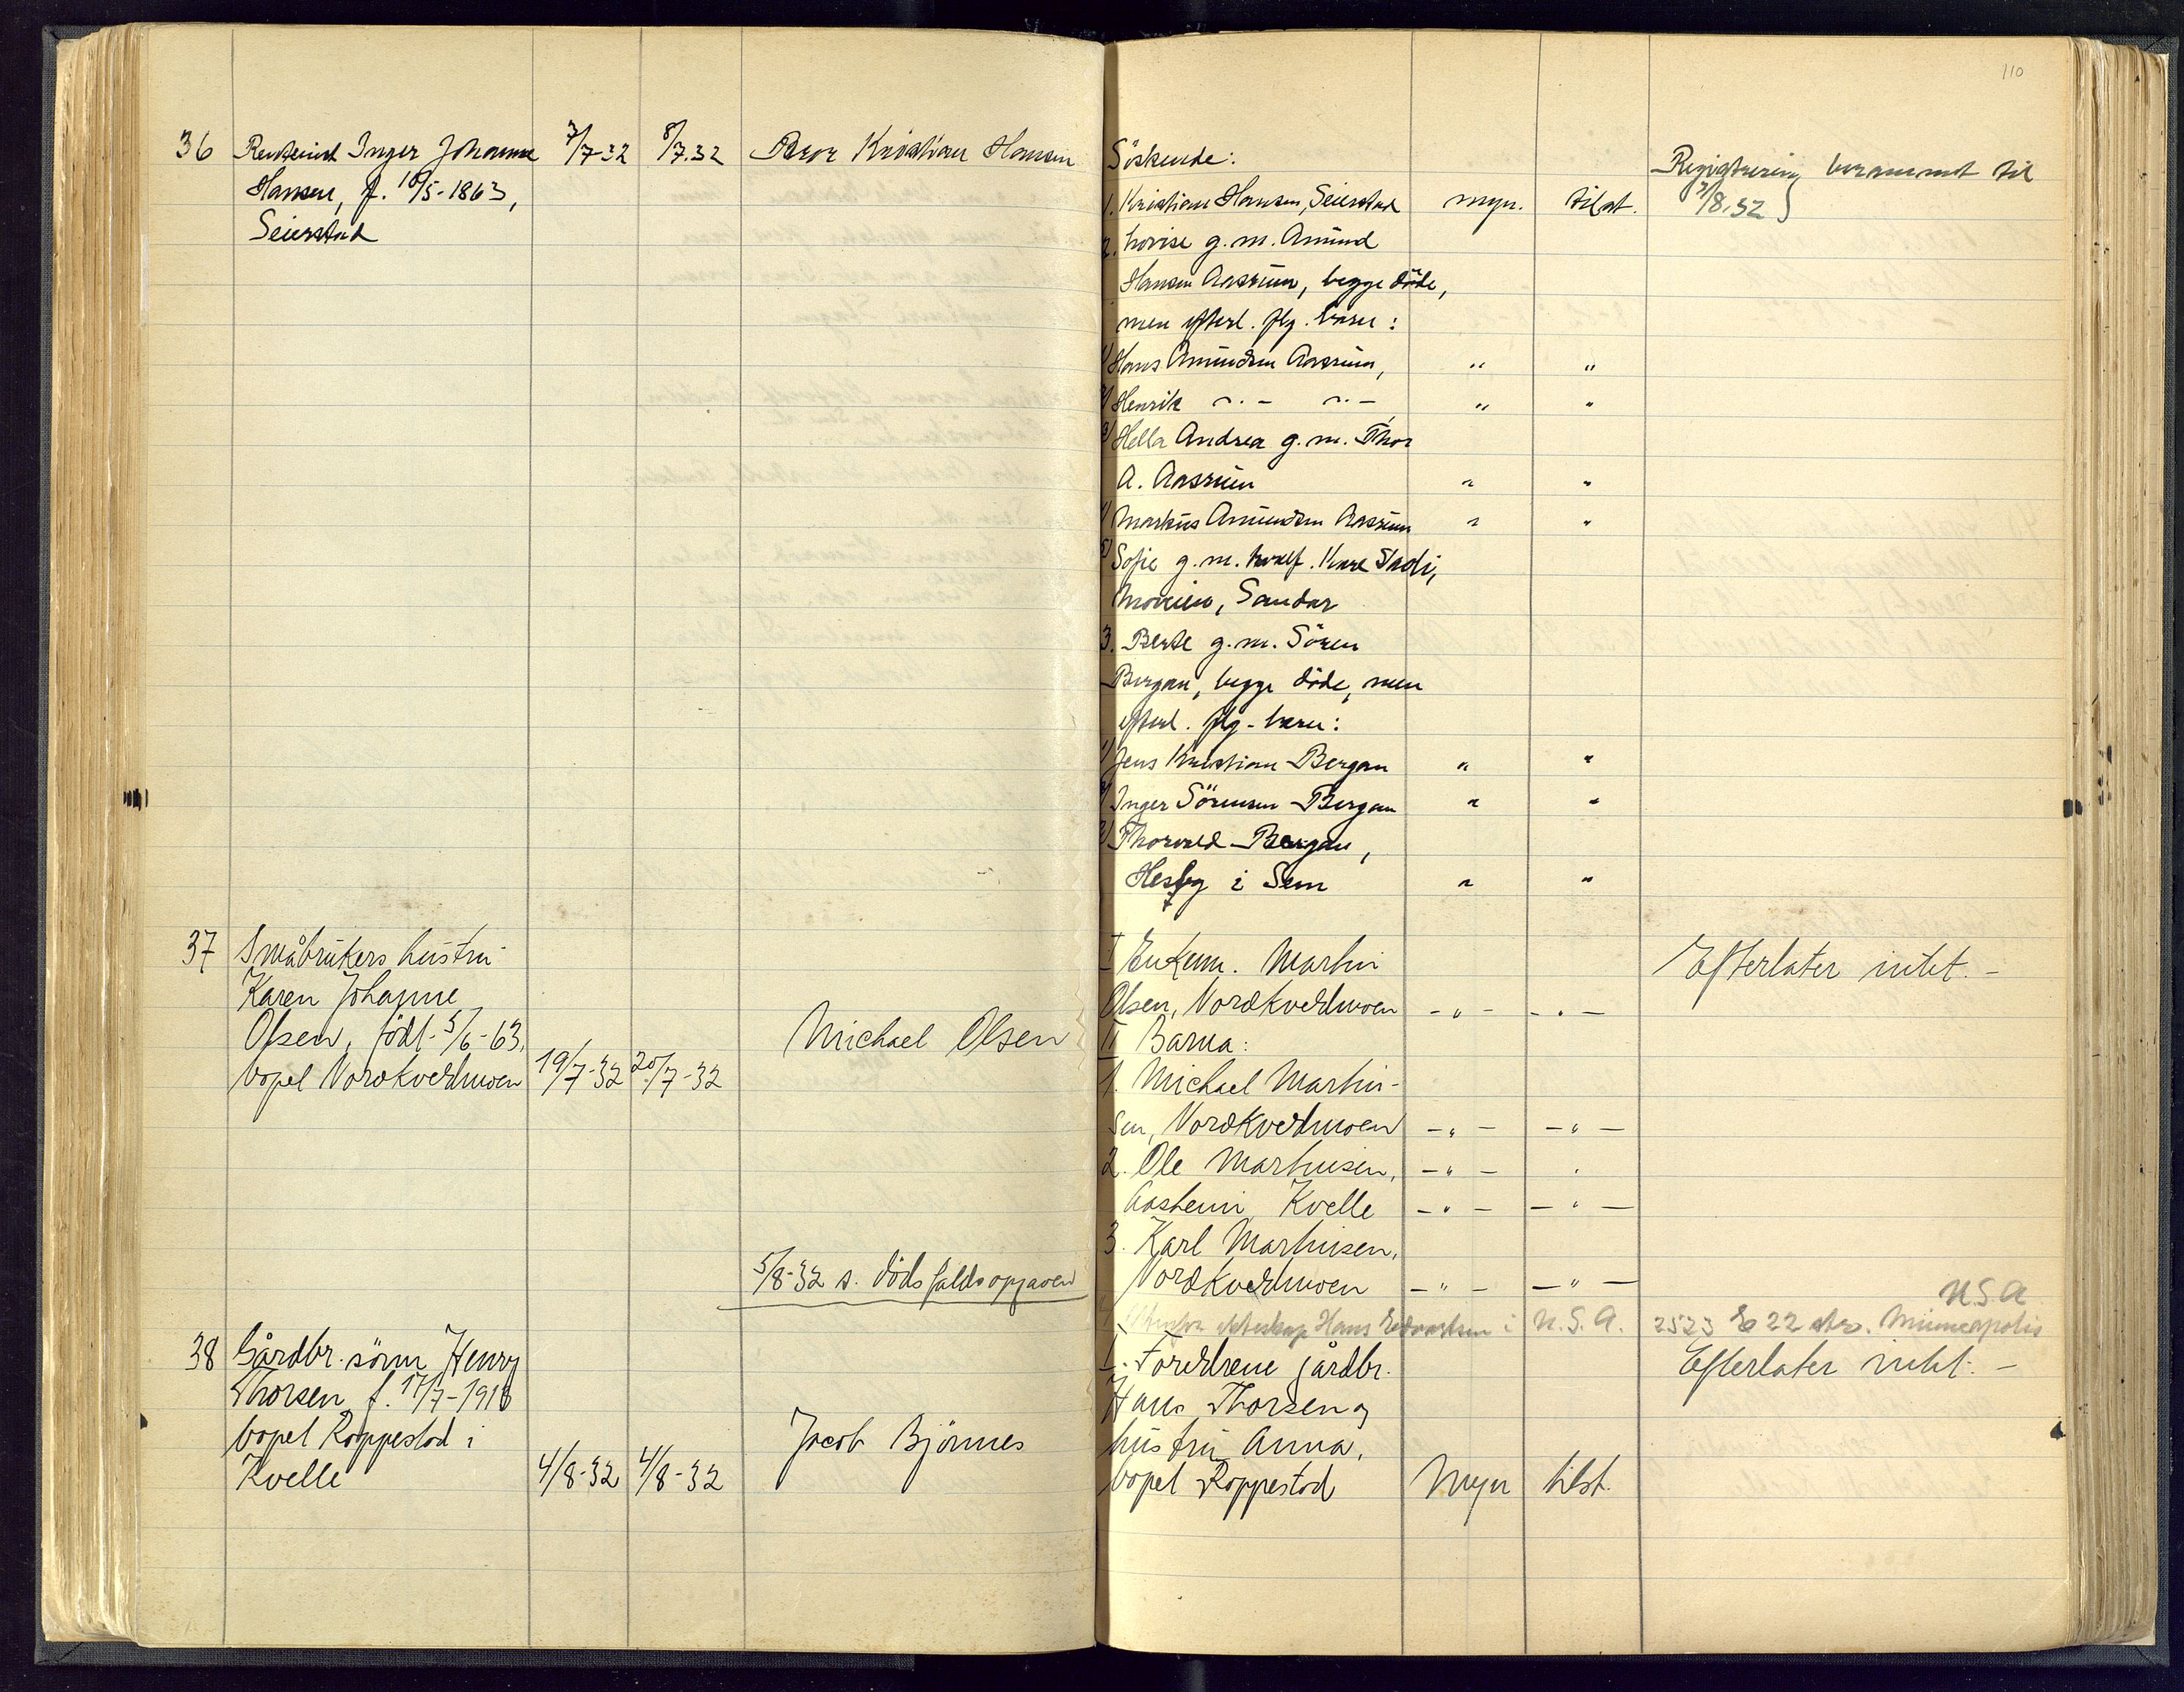 110
36 Inger Johanne 7/7-32 8/7.32 Bror Kristian Hansen
Hansen, f. 10/5-1863,
Seierstad
Söskende:
1. Kristian Hansen, Seierstad myn. tilst.
2. Lovise g. m. Amund
Hansen Aasrum, begge döde,
men efterl. flg. barn:
1) Hans Amundsen Aasrum, " "
2) Henrik " - " - " "
3) Hella Andrea g. m. Thor
A. Aasrum " "
4) Markus Amundsen Aasrum " "
5) Sofie g. m. hvalf.
Sandar
3. Berte g. m. Sören
Bergan, begge döde, men
efterl. flg. barn:
1) Jens Kristian Bergan " "
2) Inger Sörensen Bergan " "
3) Thorvald Bergan,
Hesby i Sem " "
Registrering berammet til
3/8.32
37 Småbrukers hustru
Karen Johanne
Olsen, född 5/6-63,
bopel Nordkvelmoen 19/7-32 20/7-32
Michael Olsen
5/8-32 s. dödsfaldsopgaven
I Enkem. Martin
Olsen, Nordkvelmoen - " - - " -
II Barna:
1. Michael Martin-
sen, Nordkvelmoen - " - - " -
2. Ole Martinsen, - " - "
Aasheim, Kvelle - " - - " -
3. Karl Martinsen,
Nordkvelmoen - " - - " -
Hans Edvardsen i U.S.A. 2523 E 22 str. Minneapolis
U.S.A
Efterlater intet. -
38 Gårdbr. sönn Henry
Thorsen f. 17/7-1918
bopel Roppestad i
Kvelle 4/8-32 4/8-32
Jacob Björnnes
I. Foreldrene gårdbr.
Hans Thorsen og
hustru Anna,
bopel Roppestad Myn tilst.
Efterlater intet. -